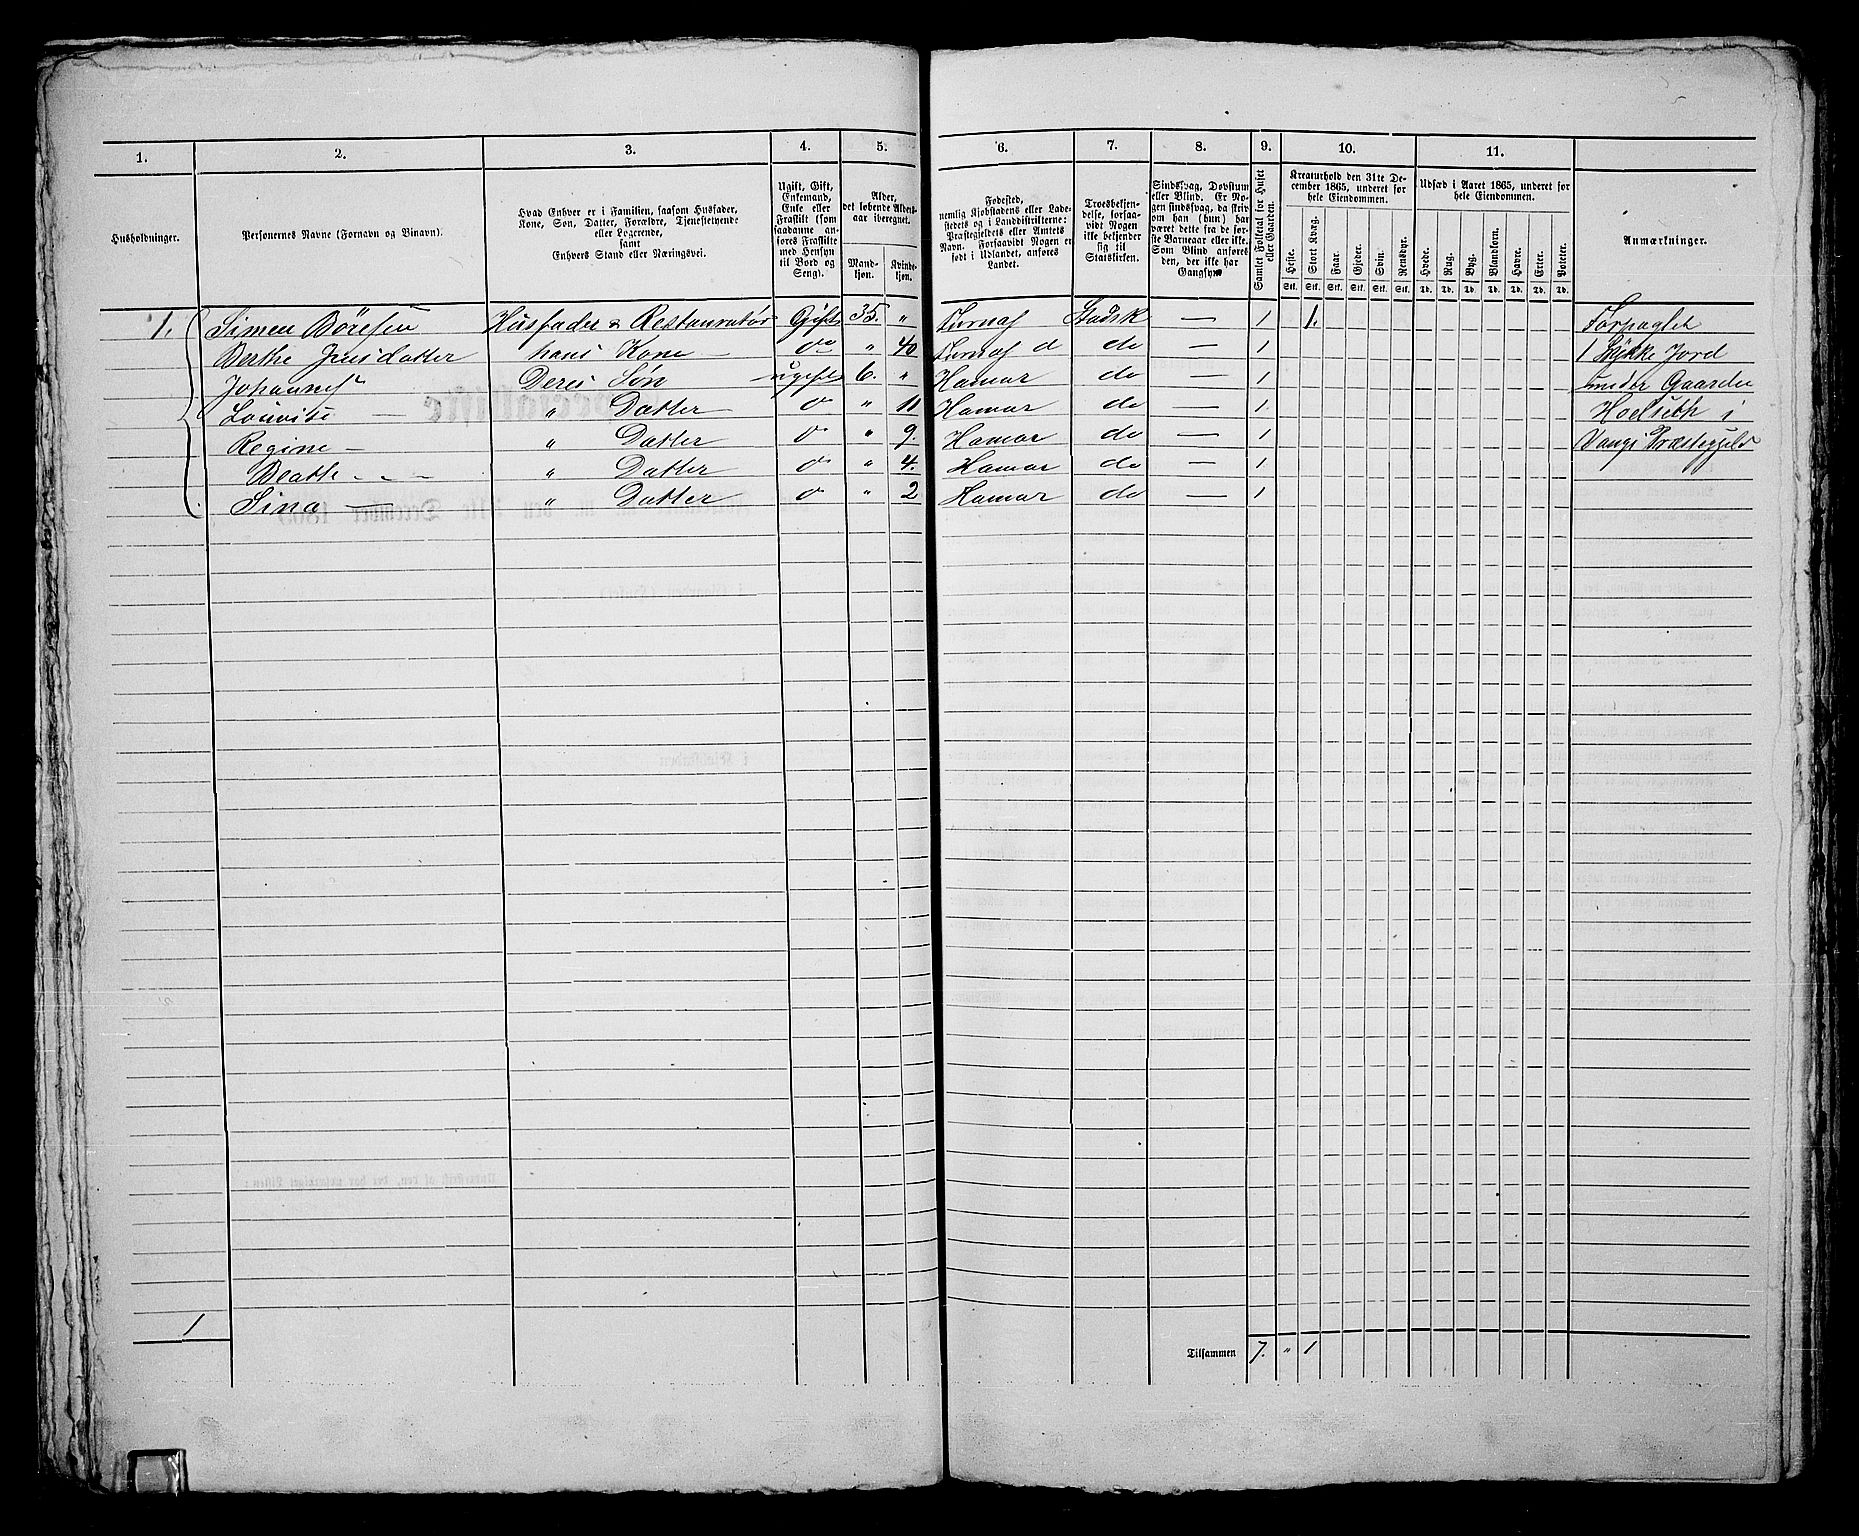 1. 2. 3. 4. 5. 6. 7. 8. 9. 10. 11.
Husholdninger.
Personernes Navne (Fornavn og Binavn).
Hvad Enhver er i Familien, saasom Husfader,
Kone, Søn, Datter, Forældre, Tjenestetyende
eller Logerende,
samt
Enhvers Stand eller Næringsvei.
Ugift, Gift,
Enkemand,
Enke eller
Fraskilt (som
saadanne an-
føres Fraskilte
med Hensyn
til Bord og
Seng).
Alder,
det løbende Alders-
aar iberegnet.
Mand-
kjøn.
Kvinde-
kjøn.
Fødested,
nemlig Kjøbstadens eller Lade-
stedets og i Landdistrikterne:
Præstegjeldets eller Amtets
Navn. Forsaavidt Nogen er
født i Udlandet, anføres
Landet.
Troesbekjen-
delse, forsaa-
vidt Nogen
ikke bekjender
sig til
Statskirken.
Sindssvag, Døvstum
eller Blind. Er No-
gen sindssvag, da skriv
om han (hun) har
været dette fra de før-
ste Barneaar eller ikke.
Som Blind ansøres
den, der ikke har
Gangsyn.
Samlet Folketal for Huset
eller Gaarden.
Kreaturhold den 31te De-
cember 1865, underet for
hele Eiendommen.
Heste. Stort Kvæg. Faar. Gjeder. Svin. Rensdyr.
Stk. Stk. Stk. Stk. Stk. Stk.
Udsæd i Aaret 1865, underet for
hele Eiendommen.
Hvede. Rug. Byg. Blandkorn. Havre. Erter. Poteter.
Td. Td. Td. Td. Td. Td. Td.
Anmærkninger.
1. Simen Børesen Husfader & Restauratør Gift 35. " Furnæs Statsk — 1 1. Forpagtet
Berthe Jensdatter hans Kone — do " 40 Furnæs do — 1 1 Stykke Jord
Johannes Deres Søn ugift 6. " Hamar do — 1 under Gaarden
Louvise — " Datter o " 11 Hamar do — 1 Hoelseth i
Regine — " Datter o " 9. Hamar do — 1 Vangs Præstegjeld
Beatte - - - " Datter o " 4. Hamar do — 1
Sina — " Datter o " 2 Hamar do — 1
1
Tilsammen 7. " 1